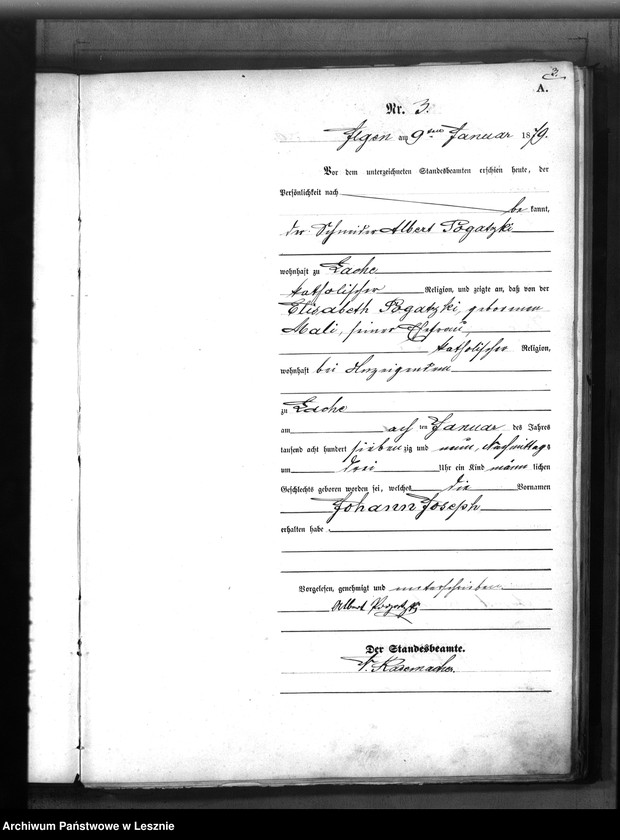 3
A.
Nr. 3.
Ilgen am 9ten Januar 1879.
Vor dem unterzeichneten Standesbeamten erschien heute, der
Persönlichkeit nach
be kannt,
der Schmied Albert Pogatzki
wohnhaft zu Lache
katholischer Religion, und zeigte an, daß von der
Elisabeth Pogatzki, geborenen
Mali, seiner Ehefrau,
katholischer Religion,
wohnhaft bei Anzeigendem
zu Lache
am acht ten Januar des Jahres
tausend acht hundert sieben zig und neun, Nachmittags
um drei Uhr ein Kind männ lichen
Geschlechts geboren worden sei, welches die Vornamen
Johann Joseph
erhalten habe.
Vorgelesen, genehmigt und unterschrieben
Albert Pogatzki
Der Standesbeamte.
Archiwum Państwowe w Lesznie